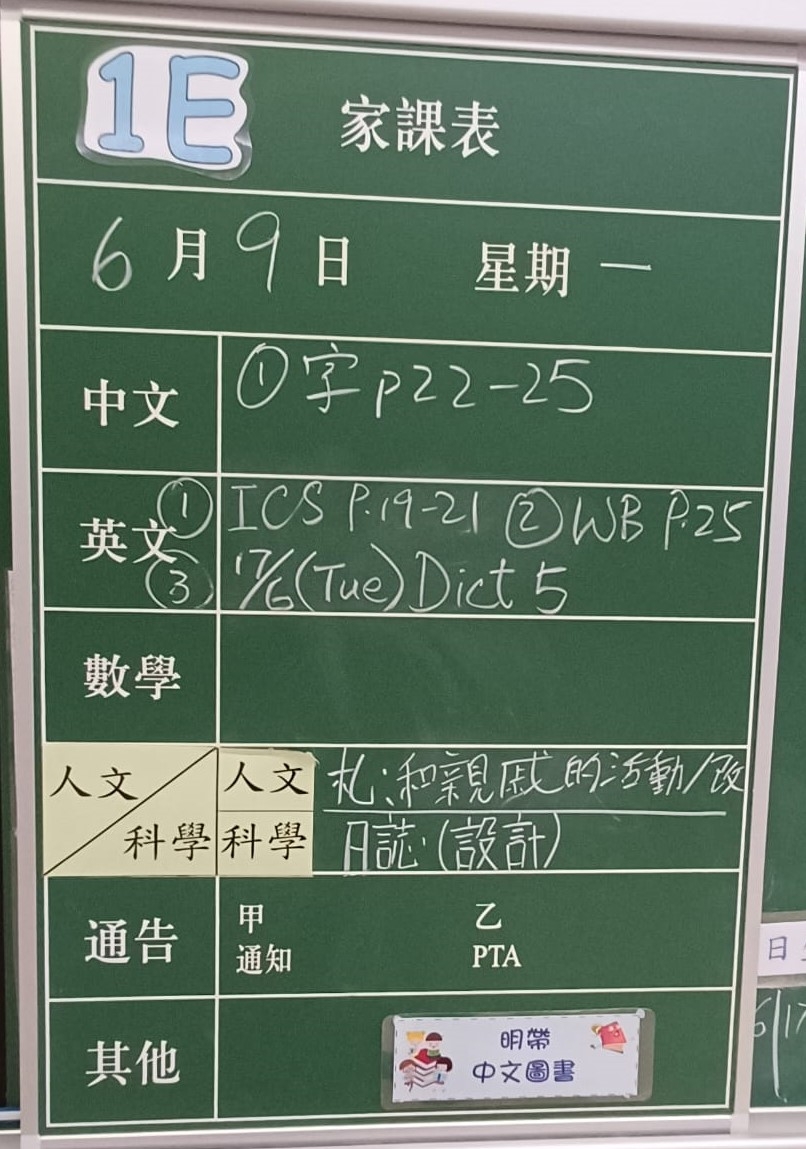 1E 家課表
6月9日 星期一
中文 ①字p22-25
英文 ①ICS P.19-21 ②WB P.25
③17/6(Tue)Dict 5
數學
人文/科學
人文 札:和親戚的活動/改
科學 日誌:(設計)
通告
甲 乙
通知 PTA
其他
明帶
中文圖書
日
6/17